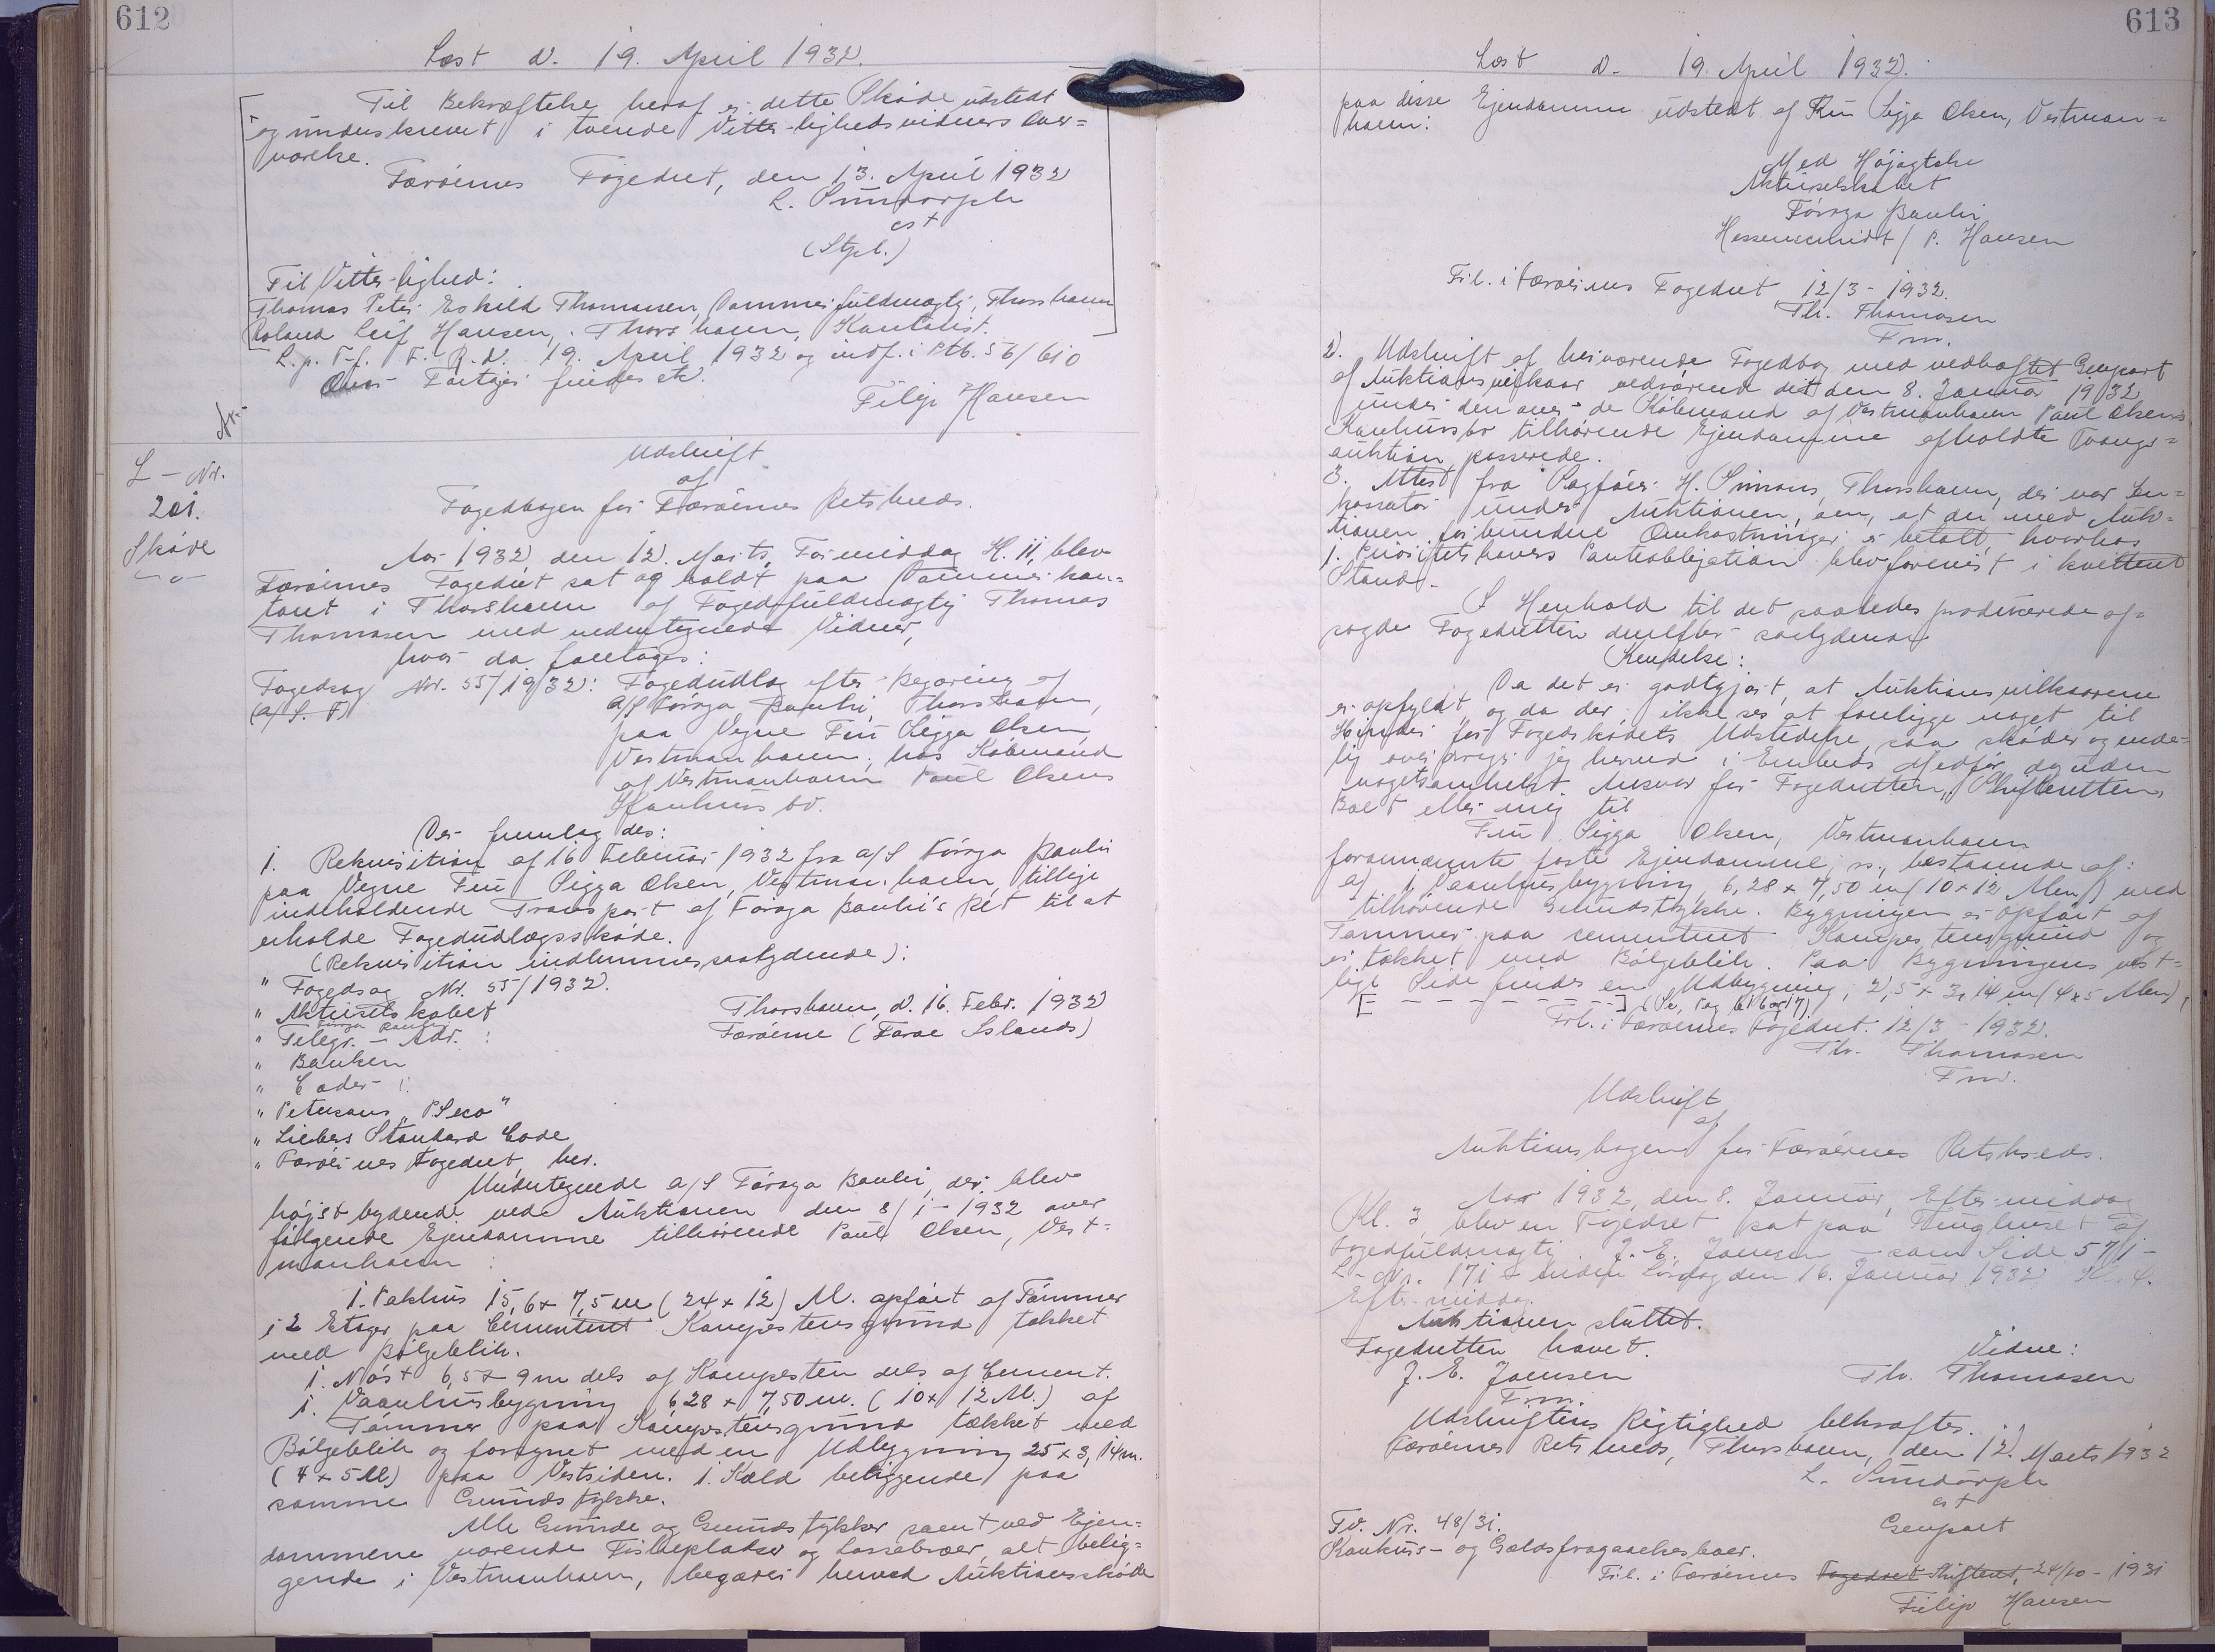 612
Læst d. 19. April 1932.
Til Bekræftelse heraf er dette Skøde udstedt
og underskrevet i tvende Vitterlighedsvidners Over=
værelse.
Færøernes Fogedret, den 13. April 1932
L. Sundorph
cst
(Stpl.)
Til Vitterlighed:
Thomas Peter Eskild Thomassen, Dommerfuldmægtig, Thorshavn
Roland Leif Hansen, Thorshavn, Kontorist.
L. p. T. f. F. R. d. 19. April 1932 og indf. i Ptb. 56/610
Fortøjer findes etc.
Filip Hansen
L-Nr.
201.
Skøde
Udskrift
af
Fogedbogen for Færøernes Retskreds.
Aar 1932, den 12. Marts, Formiddag Kl. 11, blev
Færøernes Fogedret sat og holdt paa Dommerkon=
toret i Thorshavn af Fogedfuldmægtig Thomas
Thomassen med undertegnede Vidner,
hvor da foretoges:
Fogedsag Nr. 55/1932: Fogedudlæg efter Begæring af
(a/S. F) A/S Føroya Banki, Thorshavn,
paa Vegne Fru Sigga Olsen,
Vestmanhavn, hos Købmand
af Vestmanhavn Poul Olsens
Konkursbo.
Der fremlagdes:
1. Rekvisition af 16 Februar 1932 fra A/S Føroya Banki
paa Vegne Fru Sigga Olsen, Vestmanhavn, tillige
indeholdende Transport af Føroya Banki's Ret til at
erholde Fogedudlægsskøde.
(Rekvisition indlemmes saalydende):
" Fogedsag Nr. 55/1932.
" Aktieselskabet Thorshavn, d. 16. Febr. 1932
Føroya Banki
" Telegr. - Adr. : Færøerne (Faroe Islands)
" Banken
" Codes :
" Petersons "PSeco"
" Liebers Standard Code
" Færøernes Fogedret, her.
Undertegnede A/S Føroya Banki, der blev
højstbydende ved Auktionen den 8/1-1932 over
følgende Ejendomme tilhørende Poul Olsen, Vest=
manhavn :
1. Pakhus 15,6 x 7,5 m (24 x 12) Al. opført af Tømmer
i 2 Etager paa Cementeret Kampestensgrund tækket
med Bølgeblik.
1. Nøst 6,5 x 9 m dels af Kampesten dels af Cement.
1. Vaanhusbygning 628 x 7,50 m. (10 x 12 Al.) af
Tømmer paa Kampestensgrund tækket med
Bølgeblik og forsynet med en Udbygning 25 x 3,14 m.
(4 x 5 Al) paa Vestsiden. 1. Kæld beliggende paa
samme Grundstykke.
Alle Grunde og Grundstykker samt ved Ejen=
dommene værende Fiskepladser og Lossebroer, alt belig=
gende i Vestmanhavn, begærer herved Auktionsskøde
613
Læst d. 19. April 1932.
paa disse Ejendomme udstedt af Fru Sigga Olsen, Vestman=
havn:
Med Højagtelse
Aktieselskabet
Føroya Banki
Hessenschmidt / P. Hansen
Frl. i Færøernes Fogedret 12/3-1932.
Th. Thomasen
Fm.
2. Udskrift af herværende Fogedbog med vedhæftet Genpart
af Auktionsvilkaar vedrørende det den 8. Januar 1932
under den over de Købmand af Vestmanhavn Poul Olsens
Konkursbo tilhørende Ejendomme afholdte Tvangs=
auktion passerede.
3. Attest fra Sagfører H. Simons, Thorshavn, der var In=
kassator under Auktionen, om, at de med Auk=
tionen forbundne Omkostninger er betalt, hvorhos
1. Prioritetshavers Panteobligation blev forevist i kvitteret
Stand.
I Henhold til det saaledes producerede af=
sagde Fogedretten derefter saalydende
Kendelse:
Da det er godtgjort, at Auktionsvilkaarene
er opfyldt, og da der ikke ses at foreligge noget til
Hinder for Fogedskødets Udstedelse, saa skøder og ende=
lig overdrager jeg herved i Embeds Medfør og uden
nogetsomhelst Ansvar for Fogedretten, Skifteretten,
Boet eller mig til
Fru Sigga Olsen, Vestmanhavn
forannævnte faste Ejendomme, bestaaende af:
a) 1 Vaanhusbygning, 6,28 x 7,50 m (10 x 12 Alen) med
tilhørende Grundstykke. Bygningen er opført af
Tømmer paa cementeret Kampestensgrund og
er tækket med Bølgeblik. Paa Bygningens vest=
lige Side findes en Udbygning, 2,5 x 3,14 m (4 x 5 Alen),
[ - - - - - - - - ] (Se Pag 616 or 17)
Frl. i Færøernes Fogedret. 12/3-1932.
Th. Thomasen
Fm.
Udskrift
af
Auktionsbogen for Færøernes Retskreds.
Aar 1932, den 8. Januar, Eftermiddag
Kl. 3, blev en Fogedret sat paa Tinghuset af
Fogedfuldmægtig J. E. Joensen - som Side 571 -
L-Nr. 171 - inden Lørdag den 16. Januar 1932 Kl. 4.
Eftermiddag.
Auktionen sluttet.
Fogedretten hævet. Vidne:
J. E. Joensen Th. Thomasen
Fm.
Udskriftens Rigtighed bekræftes.
Færøernes Retskreds, Thorshavn, den 12. Marts 1932
L. Sundorph
cst
Fv. Nr. 48/31. Genpart
Konkurs- og Gældsfragaaelsesboer.
Frl. i Færøernes Fogedret Skifteret, 24/10-1931
Filip Hansen